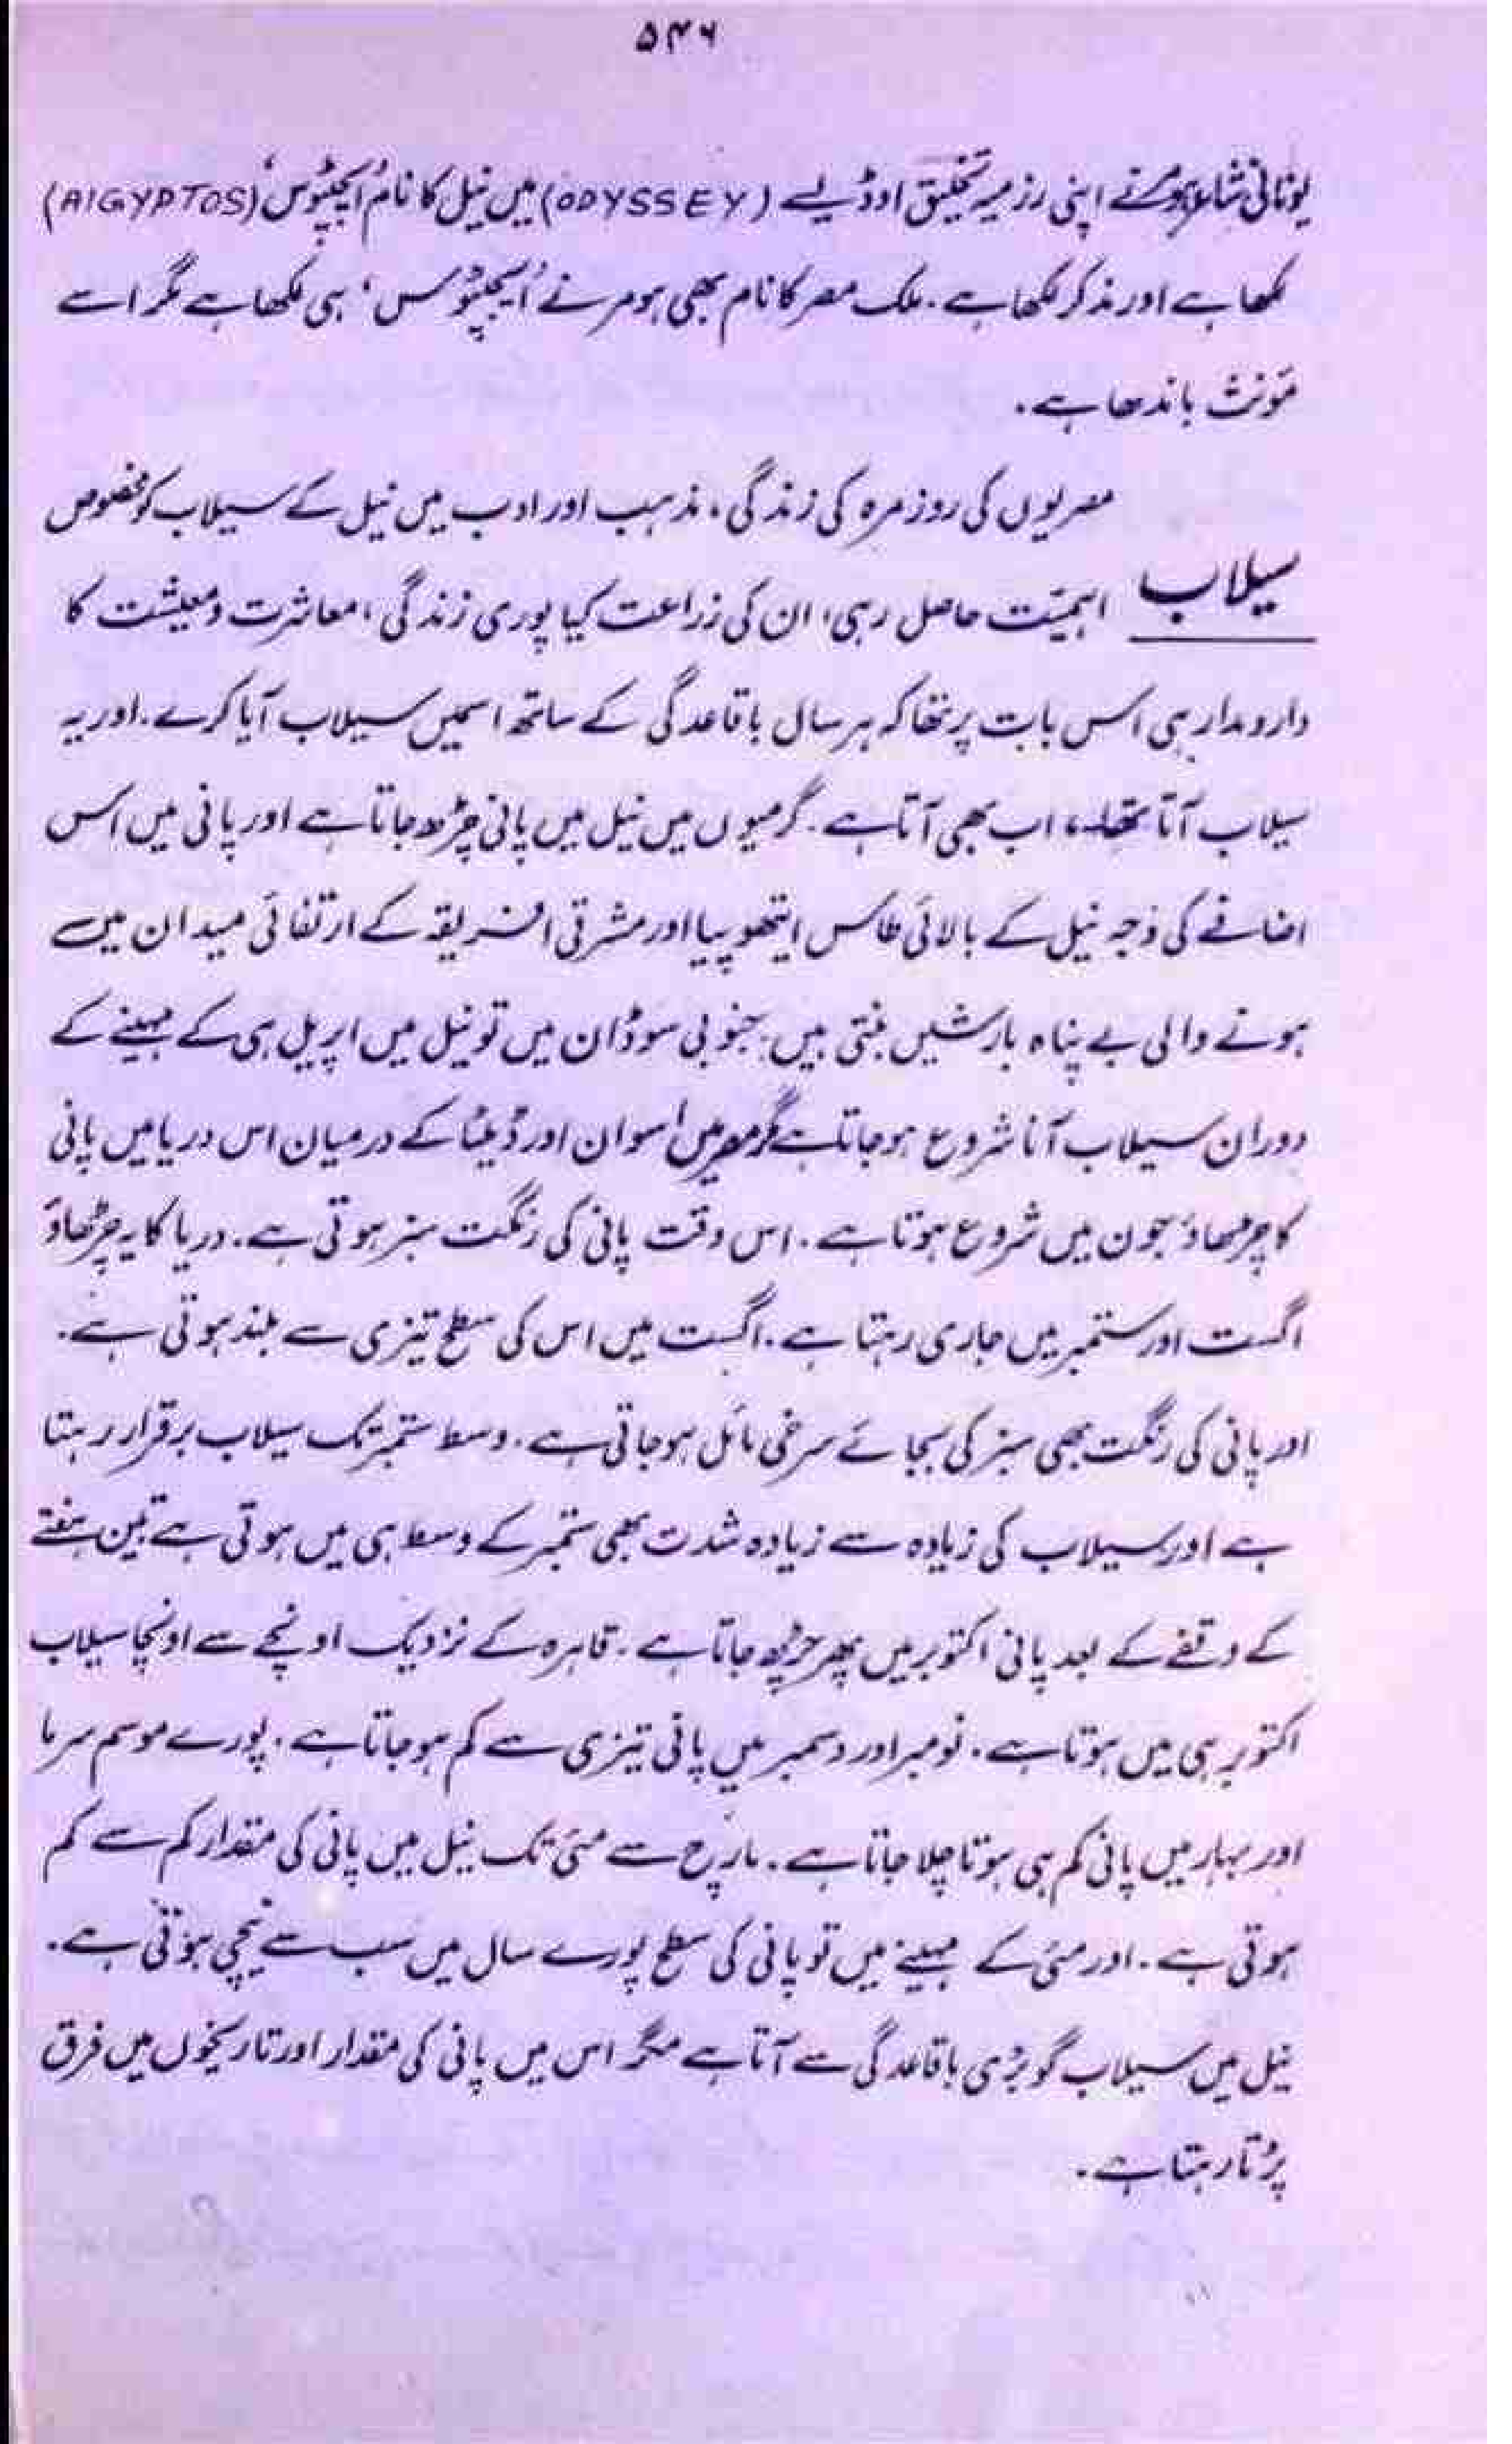 ۵۴۶
یونانی شاعر ہومر نے اپنی رزمیہ تخلیق اوڈیسے (ODYSSEY) میں نیل کا نام 'ایجپٹوس' (AIGYPTOS)
لکھا ہے اور مذکر لکھا ہے۔ ملک مصر کا نام بھی ہومر نے 'ایجپٹوس' ہی لکھا ہے مگر اسے
مؤنث باندھا ہے۔
مصریوں کی روزمرہ کی زندگی، مذہب اور ادب میں نیل کے سیلاب کو مخصوص
سیلاب
اہمیّت حاصل رہی، ان کی زراعت کیا پوری زندگی، معاشرت و معیشت کا
دارومدار ہی اس بات پر تھا کہ ہر سال باقاعدگی کے ساتھ اسمیں سیلاب آیا کرے۔ اور یہ
سیلاب آتا تھا، اب بھی آتا ہے۔ گرمیوں میں نیل میں پانی چڑھ جاتا ہے اور پانی میں اس
اضافے کی وجہ نیل کے بالائی طاس ایتھوپیا اور مشرقی افریقہ کے ارتفائی میدان میں
ہونے والی بے پناہ بارشیں بنتی ہیں۔ جنوبی سوڈان میں تو نیل میں اپریل ہی کے مہینے کے
دوران سیلاب آنا شروع ہو جاتا ہے مگر مصر میں اسوان اور ڈیلٹا کے درمیان اس دریا میں پانی
کا چڑھاؤ جون میں شروع ہوتا ہے۔ اس وقت پانی کی رنگت سبز ہوتی ہے۔ دریا کا یہ چڑھاؤ
اگست اور ستمبر میں جاری رہتا ہے۔ اگست میں اس کی سطح تیزی سے بلند ہوتی ہے۔
اور پانی کی رنگت بھی سبز کی بجائے سرخی مائل ہو جاتی ہے۔ وسط ستمبر تک سیلاب برقرار رہتا
ہے اور سیلاب کی زیادہ سے زیادہ شدت بھی ستمبر کے وسط ہی میں ہوتی ہے تین ہفتے
کے وقفے کے بعد پانی اکتوبر میں پھر چڑھ جاتا ہے۔ قاہرہ کے نزدیک اونچے سے اونچا سیلاب
اکتوبر ہی میں ہوتا ہے۔ نومبر اور دسمبر میں پانی تیزی سے کم ہو جاتا ہے۔ پورے موسم سرما
اور بہار میں پانی کم ہی ہوتا چلا جاتا ہے۔ مارچ سے مئی تک نیل میں پانی کی مقدار کم سے کم
ہوتی ہے۔ اور مئی کے مہینے میں تو پانی کی سطح پورے سال میں سب سے نیچی ہوتی ہے۔
نیل میں سیلاب گو بڑی باقاعدگی سے آتا ہے مگر اس میں پانی کی مقدار اور تاریخوں میں فرق
پڑتا رہتا ہے۔